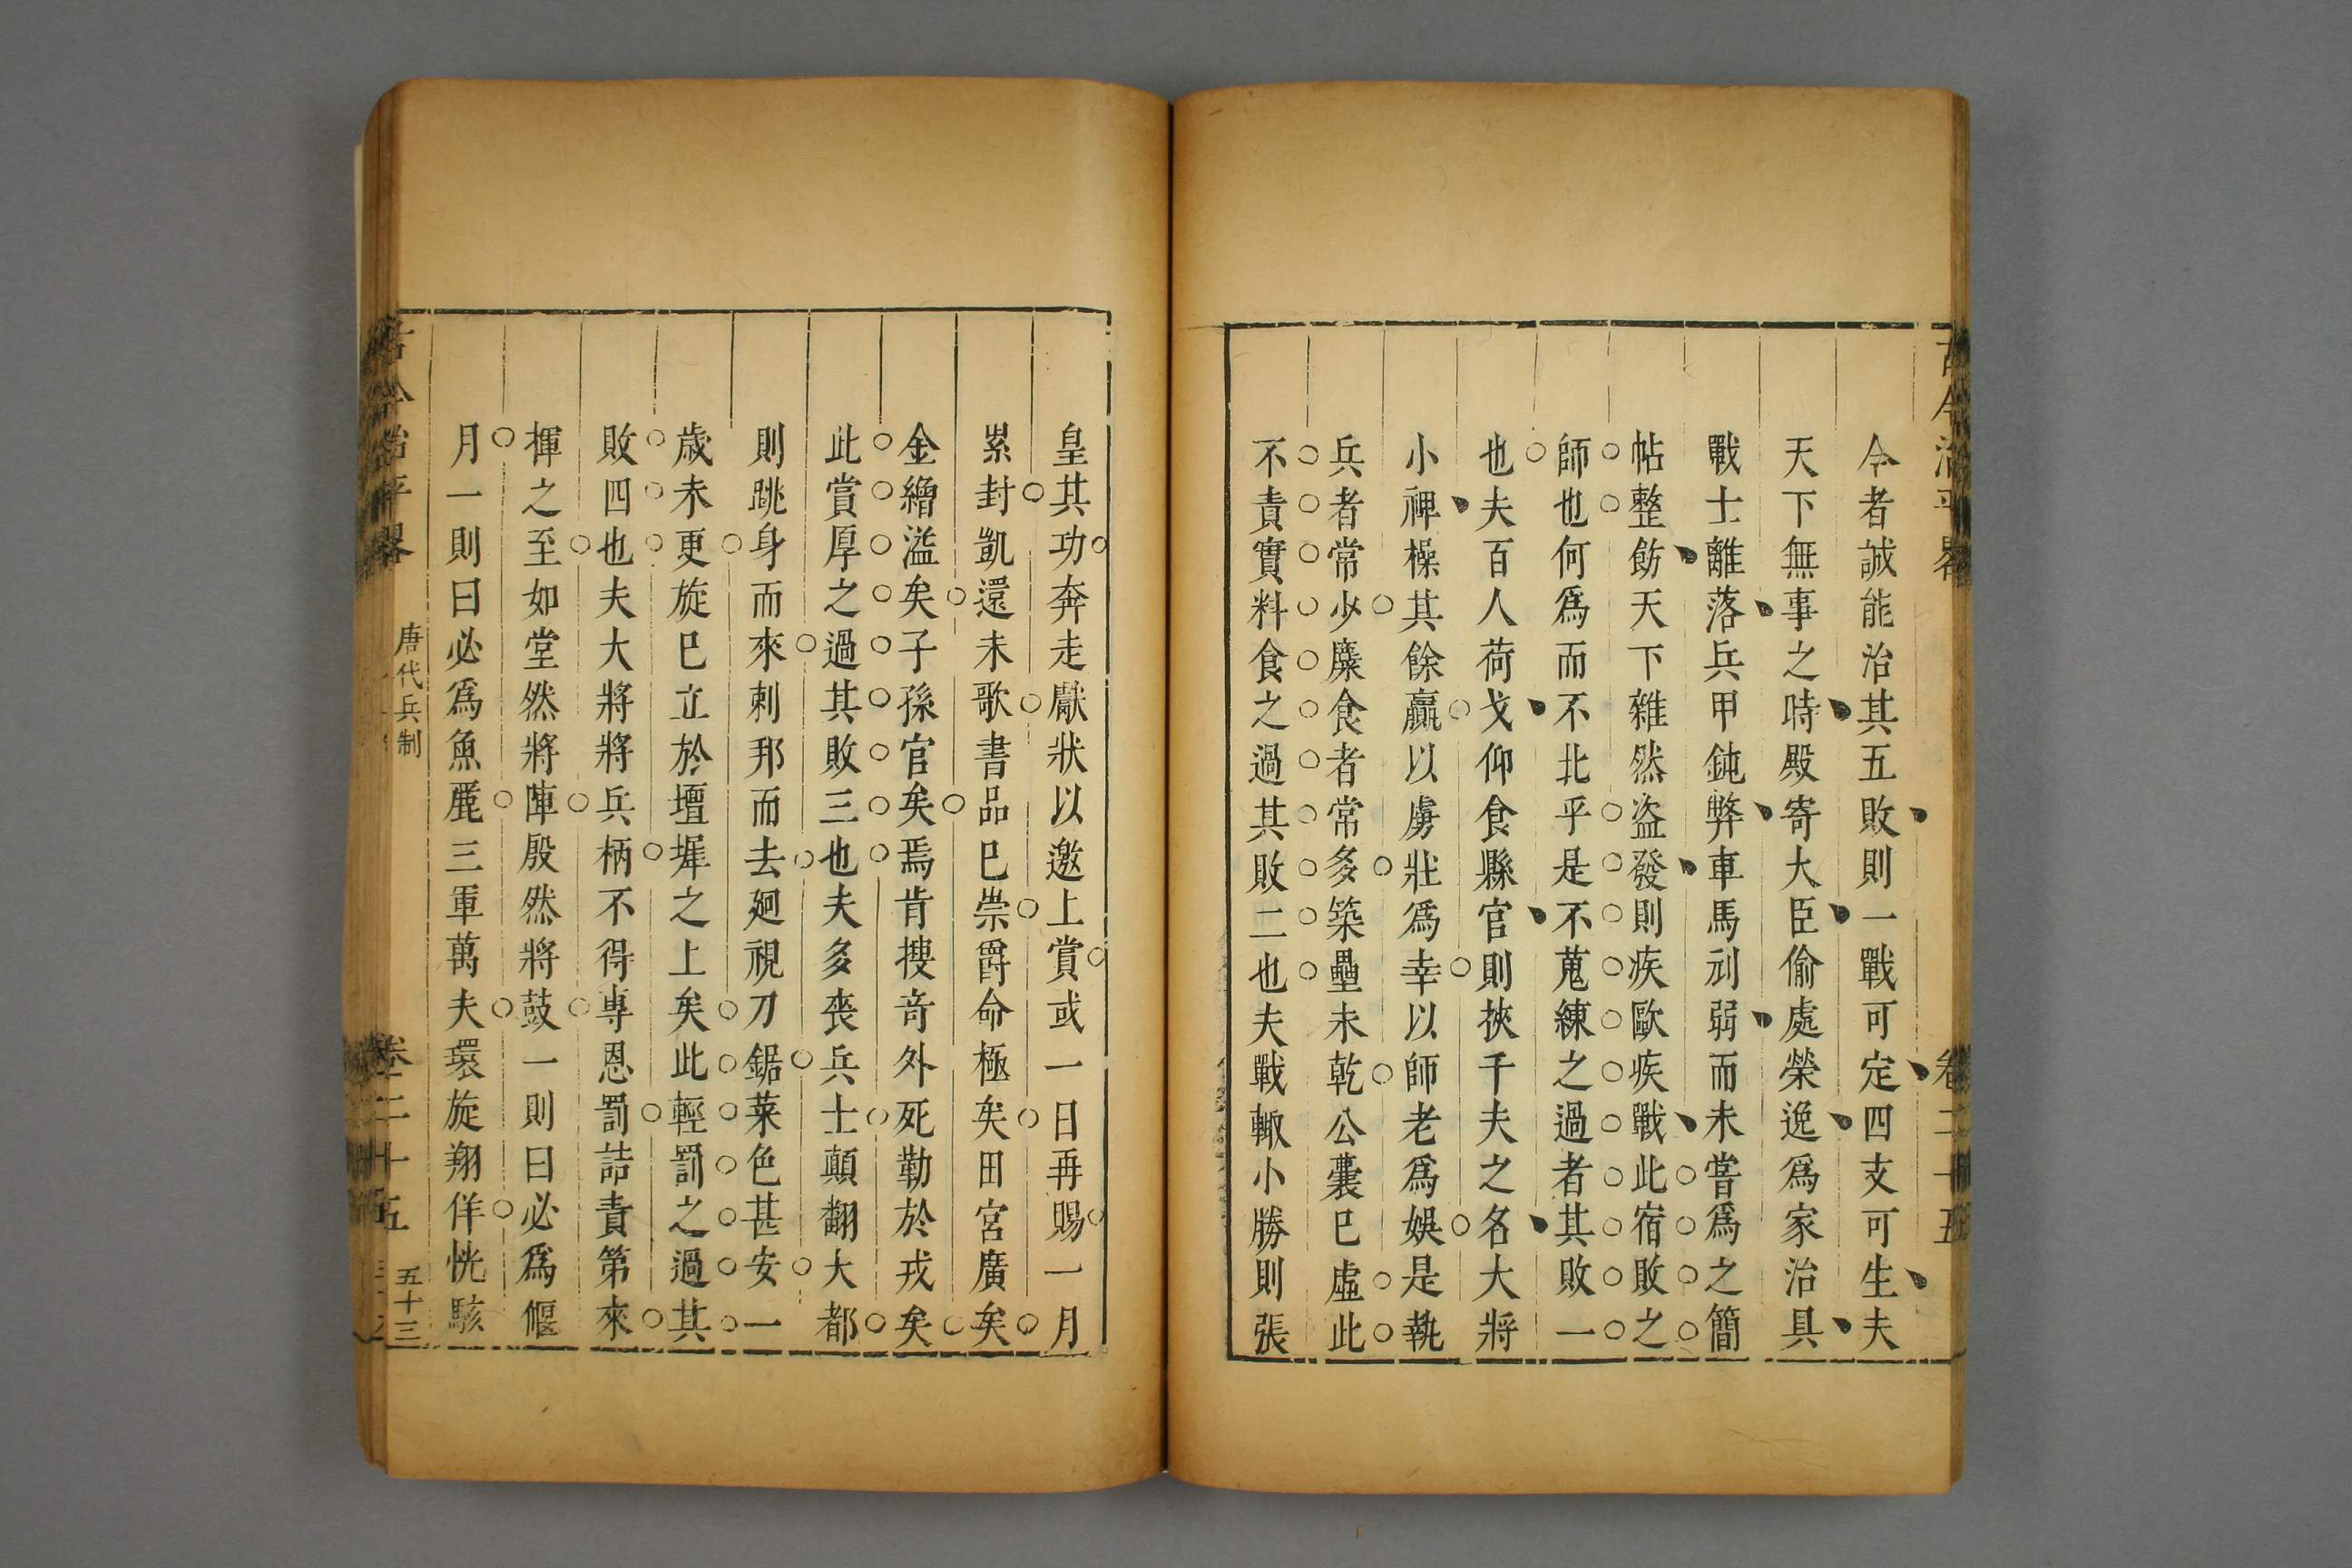 古今治平畧 卷二十五
今者誠能治其五敗則一戰可定四支可生夫
天下無事之時殿寄大臣偷處榮逸爲家治具
戰士離落兵甲鈍弊車馬刓弱而未嘗爲之簡
帖整飭天下雜然盜發則疾歐疾戰此宿敗之
師也何爲而不北乎是不蒐練之過者其敗一
也夫百人荷戈仰食縣官則挾千夫之名大將
小裨操其餘贏以虜壯爲幸以師老爲娛是執
兵者常少糜食者常多築壘未乾公囊已虛此
不責實料食之過其敗二也夫戰輙小勝則張
皇其功奔走獻狀以邀上賞或一日再賜一月
累封凱還未歌書品已崇爵命極矣田宮廣矣
金繒溢矣子孫官矣焉肯搜竒外死勤於戎矣
此賞厚之過其敗三也夫多喪兵士顛翻大都
則跳身而來刺邦而去廻視刀鋸菜色甚安一
歲未更旋已立於壇墀之上矣此輕罰之過其
敗四也夫大將將兵柄不得專恩罰詰責第來
揮之至如堂然將陣殷然將鼓一則曰必爲偃
月一則曰必爲魚麗三軍萬夫環旋翔佯恍駭
古今治平畧 唐代兵制 卷二十五 五十三